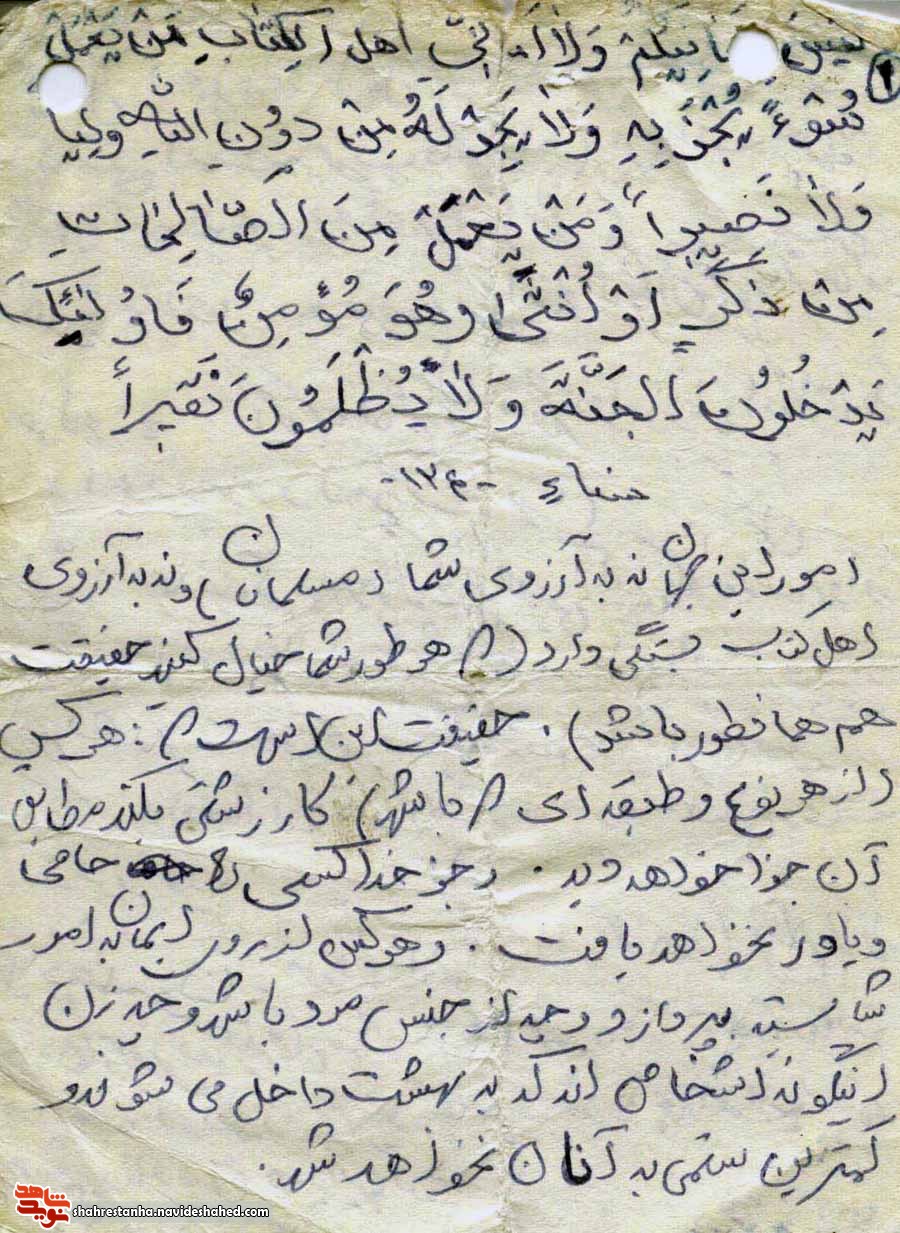 ۱
لَیْسَ بِأَمانِیِّکُمْ وَلاٰ اَمانِیِّ اهل الکِتٰابِ مَنْ یَعْمَلْ
سُوْءً یُجْزَ بِهِ وَلاٰ یَجِدْ لَهُ مِنْ دُونِ اللهِ ولیاً
وَلاٰ نَصیراً وَمَنْ یَعْمَلْ مِنَ الصّٰالِحٰاتِ
مِنْ ذَکَرٍ اَوْ اُنْثٰی وَهُوَ مُؤمِنٌ فَاُولٰئِکَ
یَدْخُلُونَ الجَنَّةَ وَلاٰ یُظْلَمُونَ نَقیراً
نساء -۱۲۴-
امور این جهان نه به آرزوی شما (مسلمانان) و نه به آرزوی
اهل کتاب بستگی دارد (که هر طور شما خیال کنید حقیقت
هم همانطور باشد). حقیقت این است که: هر کسی
(از هر نوع و طبقه ای که باشد) کار زشتی بکند مطابق
آن جزا خواهد دید. و جز خدا کسی را حامی
و یاور نخواهد یافت. و هر کس از روی ایمان به امور
شایسته بپردازد و چه از جنس مرد باشد و چه زن
اینگونه اشخاص اند که به بهشت داخل می شوند و
کمترین ستمی به آنان نخواهد شد.
نوید شاهد
shahrestanha.navideshahed.com